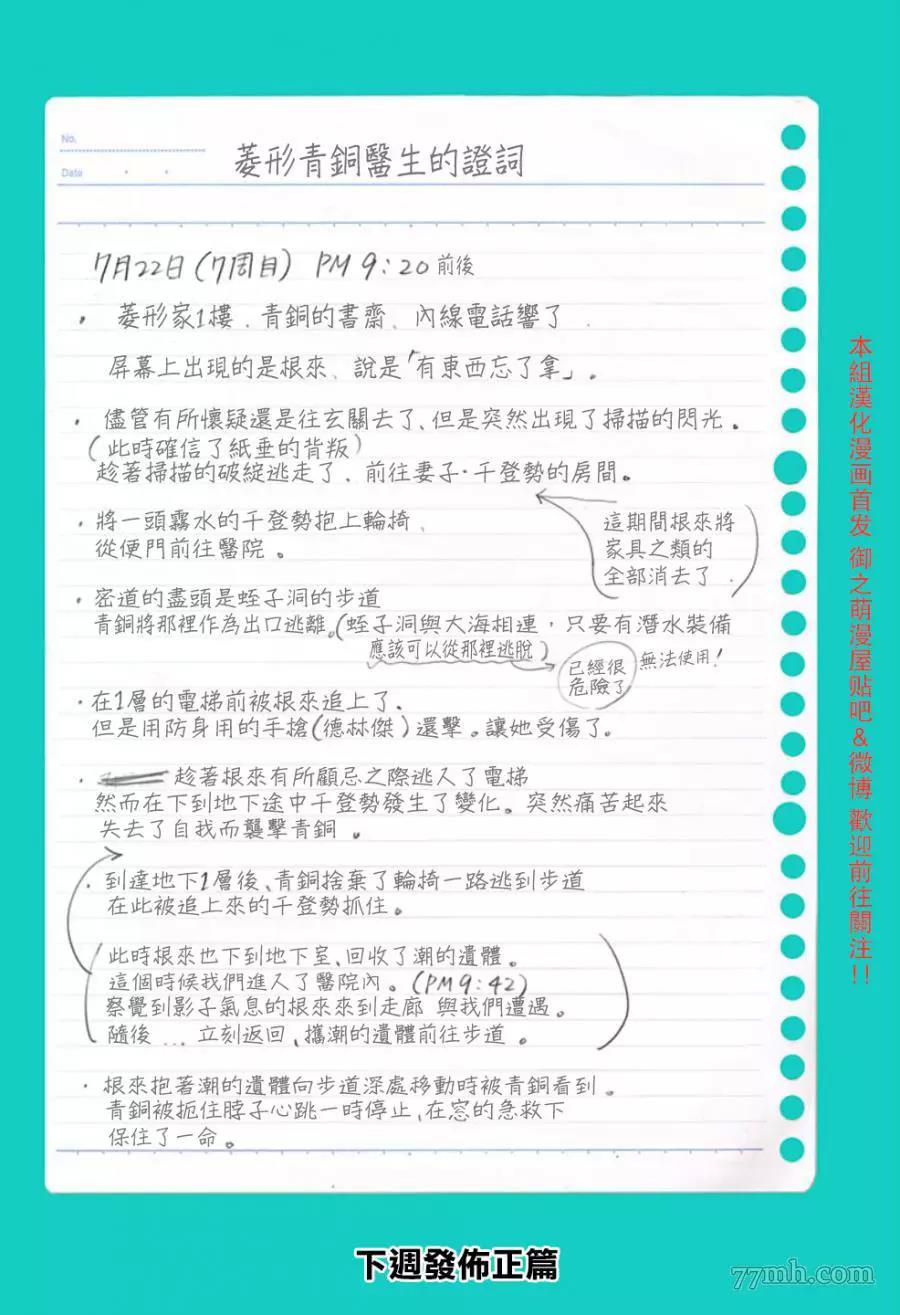 No.
Date
菱形青銅醫生的證詞
7月22日(7周目) PM 9:20 前後
・ 菱形家1樓、青銅的書齋、內線電話響了.
屏幕上出現的是根來、說是「有東西忘了拿」。
・ 儘管有所懷疑還是往玄關去了、但是突然出現了掃描的閃光。
(此時確信了紙垂的背叛)
趁著掃描的破綻逃走了、前往妻子・千登勢的房間。
這期間根來將
家具之類的
全部消去了.
・將一頭霧水的千登勢抱上輪椅、
從便門前往醫院。
・密道的盡頭是蛭子洞的步道
青銅將那裡作為出口逃離。(蛭子洞與大海相連，只要有潛水裝備
應該可以從那裡逃脫)
已經很
危險了
無法使用!
・在1層的電梯前被根來追上了、
但是用防身用的手槍(德林傑)還擊。讓她受傷了。
・ 趁著根來有所顧忌之際逃入了電梯
然而在下到地下途中千登勢發生了變化。突然痛苦起來
失去了自我而襲擊青銅。
・到達地下1層後、青銅捨棄了輪椅一路逃到步道
在此被追上來的千登勢抓住。
(此時根來也下到地下室、回收了潮的遺體。
這個時候我們進入了醫院內。(PM 9:42)
察覺到影子氣息的根來來到走廊 與我們遭遇。
隨後...立刻返回、攜潮的遺體前往步道。)
・根來抱著潮的遺體向步道深處移動時被青銅看到。
青銅被扼住脖子心跳一時停止、在窓的急救下
保住了一命。
本組漢化漫画首发 御之萌漫屋贴吧&微博 歡迎前往關注!!
下週發佈正篇
77mh.com